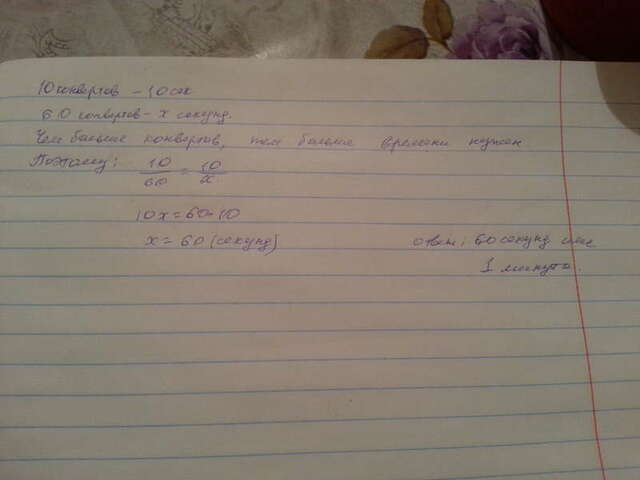 10 конвертов - 10 сек
60 конвертов - x секунд.
Чем больше конвертов, тем больше времени нужен
Поэтому: 10/60 = 10/x
10x = 60·10
x = 60 (секунд)
ответ: 60 секунд или
1 минута.